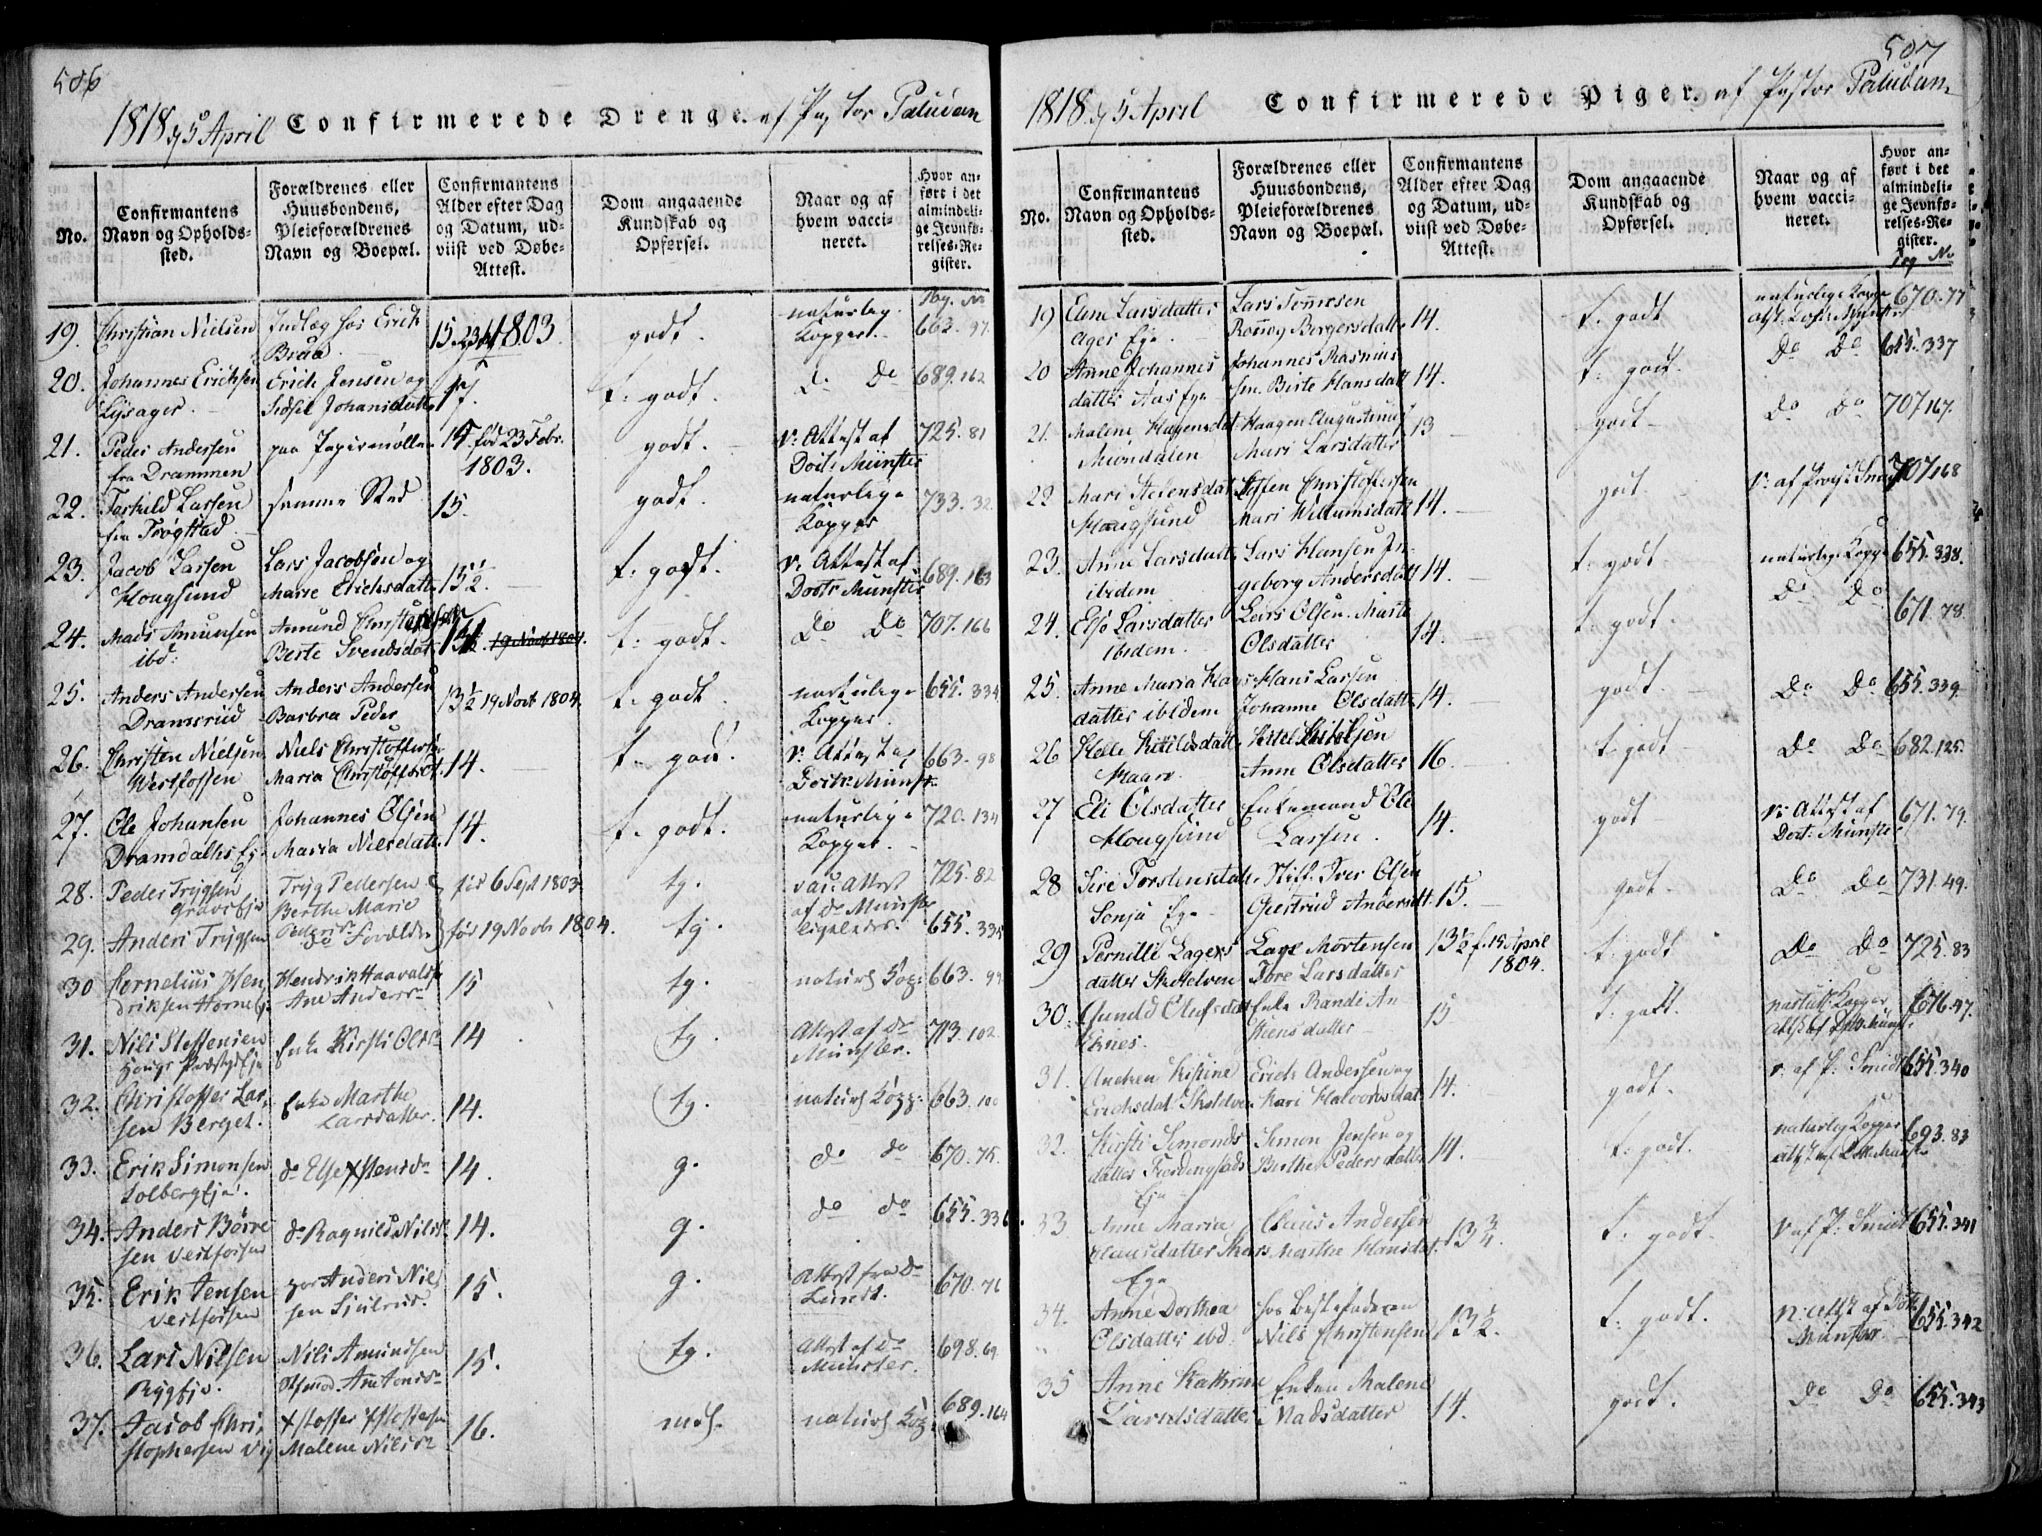 506
1818 d 5 April Confirmerede Drenge. af Pastor Paludan
No.
Confirmantens Navn og Opholds-sted.
Forældrenes eller Huusbondens, Pleieforældrenes Navn og Boepæl.
Confirmantens Alder efter Dag og Datum, ud-viist ved Døbe-Attest.
Dom angaaende Kundskab og Opførsel.
Naar og af hvem vacci-neret.
Hvor an-ført i det almindeli-ge Jevnfø-relses-Re-gister.
Pag. No
19. Christian Nielsen
Indlæg hos Erich Braa
15. 1803
godt
naturlig. Kopper.
663. 97.
20. Johannes Erichsen Lysager.
Erich Jensen og Sidsel Johansdatter
17.
t. godt.
do Do
689. 162
21. Peder Andersen fra Drammen
paa Papirmøllen
15 fød 23 Febr. 1803.
godt.
v: Attest af Doct: Münster
725. 81
22. Torkild Larsen fra Trøgstad
samme Sted
15.
godt.
naturlige Kopper
733. 32.
23. Jacob Larsen Hougsund
Lars Jacobsen og Marie Erichsdatter
15½.
t. godt.
v: Attest af Doctr Münster
689. 163
24. Mads Amunsen ibd:
Amund Christophersen Berte Svendsdat
14 19 Novb 1804.
t: godt.
Do Do
707. 166
25. Anders Andersen Dramsrud
Anders Andersen Barbra Peder
13½ 19 Novb 1804.
t. godt.
naturlige Kopper.
655. 334
26. Christen Nielsen Westfossen
Niels Christophersen Maria Christoffersd.
14.
t. godt.
v: Attest af Doctr: Münst
663. 98
27. Ole Johansen Dramdalls Eje
Johannes Olsen Maria Nilsdatt.
14.
t. godt.
naturlige Kopper.
720. 134
28. Peder Trygsen Gravseje
Tryg Pedersen Berthe Marie Pedersdr
fød 6 Sept 1803.
tg.
vac: Attest af Dr Münster
725. 82
29. Anders Trygsen
do Forældre
fød 19 Novb 1804.
tg.
ligeledes.
655. 335
30 Cornelius Hendriksen Horneseje
Hendrik Haavalds Ane Andersdr
15
tg.
naturl Kop:
663. 99
31. Nils Steffensen Hougs Præstegdeje
Enke Kirsti Olsdr
14
tg.
Attest af Dr Münster.
713. 102
32. Christoffer Larsen Berget.
Enke Marthe Larsdatter.
14.
tg.
naturl Kopp:
663. 100
33. Erik Simonsen Solbergeje.
do Else Xstensdr
14.
g.
do do
670. 75.
34. Anders Børresen Vestfossen
do Ragnild Nilsdr
14.
g.
do do
655. 336.
35. Erik Jensen Vestfossen
hos Anders Nilsen
15.
g.
Attest fra Dr
670. 76
36. Lars Nilsen Rygeje.
Nils Amundsen Anne Tonesdr
15.
tg.
Attest af Dr Münster.
698. 69
37. Jacob Christophersen Vig
Xstoffer Xstoffersen Malene Nilsdr
16.
mdl.
naturl Kop
689. 164
507
1818 d 5 April Confirmerede Piger. af Pastor Paludan
No.
Confirmantens Navn og Opholds-sted.
Forældrenes eller Huusbondens, Pleieforældrenes Navn og Boepæl.
Confirmantens Alder efter Dag og Datum, ud-viist ved Døbe-Attest.
Dom angaaende Kundskab og Opførsel.
Naar og af hvem vacci-neret.
Hvor an-ført i det almindeli-ge Jevnfø-relses-Re-gister.
Pag No
19 Eline Larsdatter Ager Eje
Lars Tommesen Rønnog Bergersdatt
14.
t. godt
naturlige Kopper
670. 77
20 Anne Johannesdatter Aas Eje
Johannes Rasmussen. Birte Hansdatt
14.
t. godt.
Do Do
655. 337
21. Malene Hagensdat Miondalen
Haagen Augustinus Mari Larsdatter
13
godt
Do Do
707 167.
22 Mari Stefensdat Hougsund
Steffen Christophersen Mari Willumsdatt
14.
godt.
v: af Provst Smidt
707 168
23. Anne Larsdatt ibidem
Lars Hansen Ingeborg Andersdatt
14.
t: godt
naturlige Kopper
655. 338.
24. Else Larsdatter ibidem.
Lars Olsen. Marte Olsdatter
14.
t. godt.
Do Do
671. 78.
25. Anne Maria Hansdatter ibidem
Hans Larsen Johanne Olsdatter
14.
godt.
Do Do
655. 339.
26 Helle Kittilsdatt. Haare
Kittel Kittelsen Anne Olsdatter
16.
t. godt
Do Do
682. 125.
27 Eli Olsdatter Hougsund
Enkemand Ole Larsen.
14.
godt
v: Attest af Doct: Münster
671. 79.
28 Siri Torstensdatt. Eje
Stiff. Iver Olsen Giertrud Andersdt.
15.
godt.
Do Do
731. 49.
29 Pernille Lagesdatter Stettelven
Lage Mortensen Thore Larsdatter
13½ f. 15 April 1804.
t. godt
Do Do
725. 83
30. Gunild Olufsdatt
Enke Randi Ankensdatter
15
t. godt.
naturl. Kopper
676. 47.
31. Anchen Kistine Erichsdat
Erich Andersen og Kari Halvorsdat
14.
godt.
v. af P: Smidt
655. 340
32. Kirsti Simondsdatter
Simon Jensen og Berthe Pedersdatter
14.
t. godt.
naturlig Kopper
693. 83
33 Anne Maria Clausdatter Eje
Claus Andersen Marthe Hansdat.
13¾
t. godt.
v af P: Smidt
655. 341
34. Anne Dorthea Olsdatter ibd.
hos Bestefaderen Nils Christensen
13½.
t. godt.
v: Attst af Dctr Münster
655. 342
35 Anne Kathrine Larsdatter
Enken Malene Madsdatter
14.
godt.
Do Do
655. 343